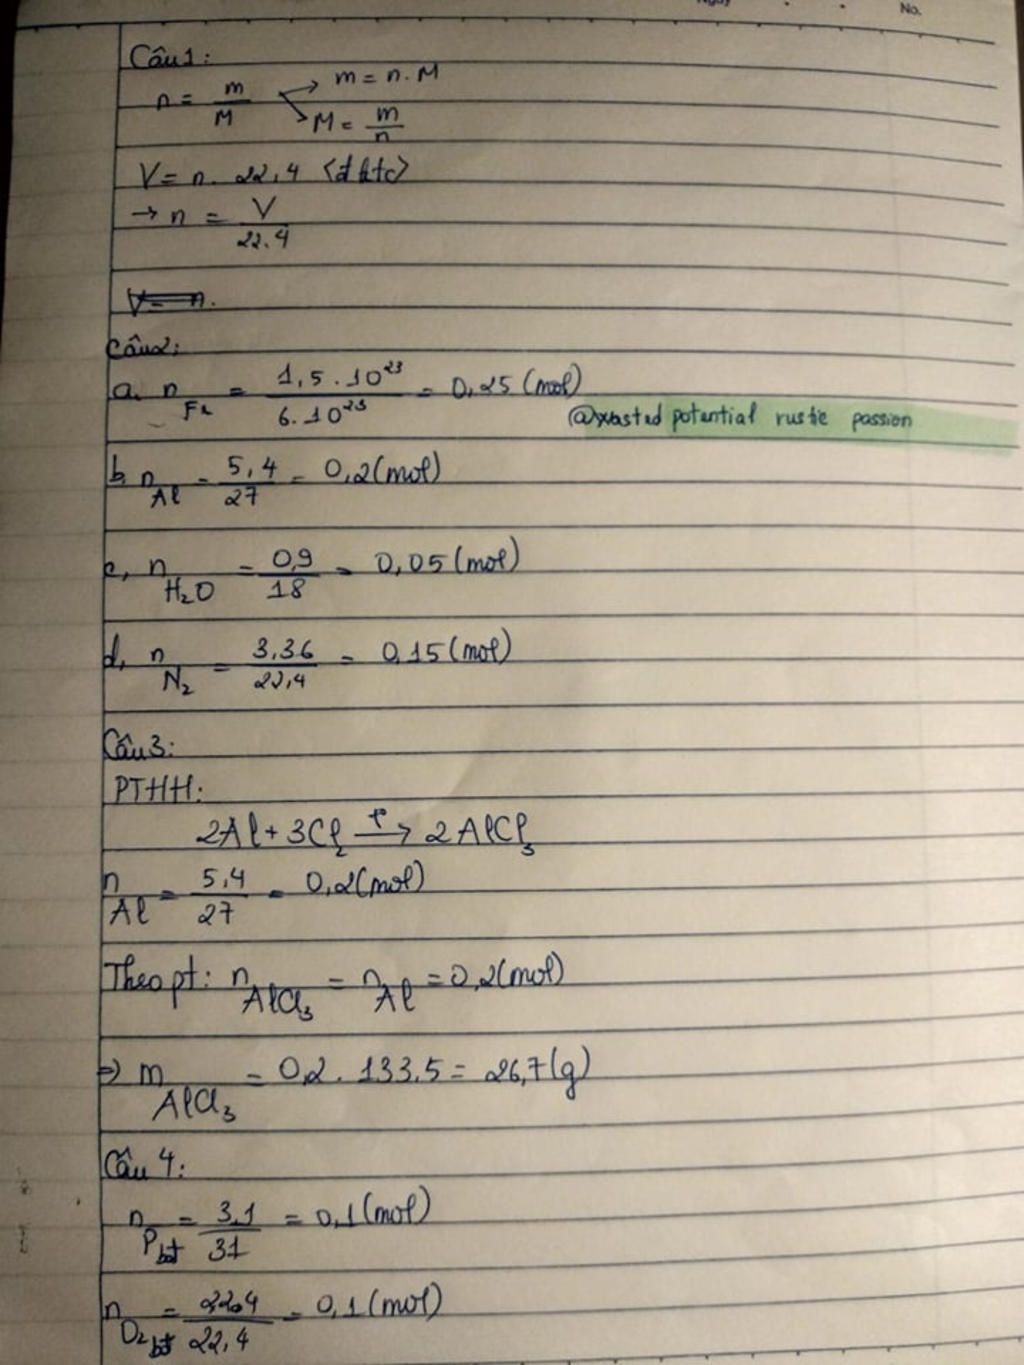 No.
Câu1:
n = m/M → m = n.M
→ M = m/n
V = n. 22,4 <đktc>
→ n = V/22.4
V = n.
Câu2:
a. n Fe = 1,5.10²³/6.10²³ = 0,25 (mol)
@wasted potential rustic passion
b, n Al = 5,4/27 = 0,2 (mol)
c, n H₂O = 0,9/18 = 0,05 (mol)
d, n N₂ = 3,36/22,4 = 0,15 (mol)
Câu3:
PTHH:
2Al + 3Cl₂ t°→ 2AlCl₃
n Al = 5,4/27 = 0,2 (mol)
Theo pt: n AlCl₃ = n Al = 0,2 (mol)
=> m AlCl₃ = 0,2 . 133,5 = 26,7 (g)
Câu 4:
n P bđ = 3,1/31 = 0,1 (mol)
n O₂ bđ = /22,4 = 0,1 (mol)